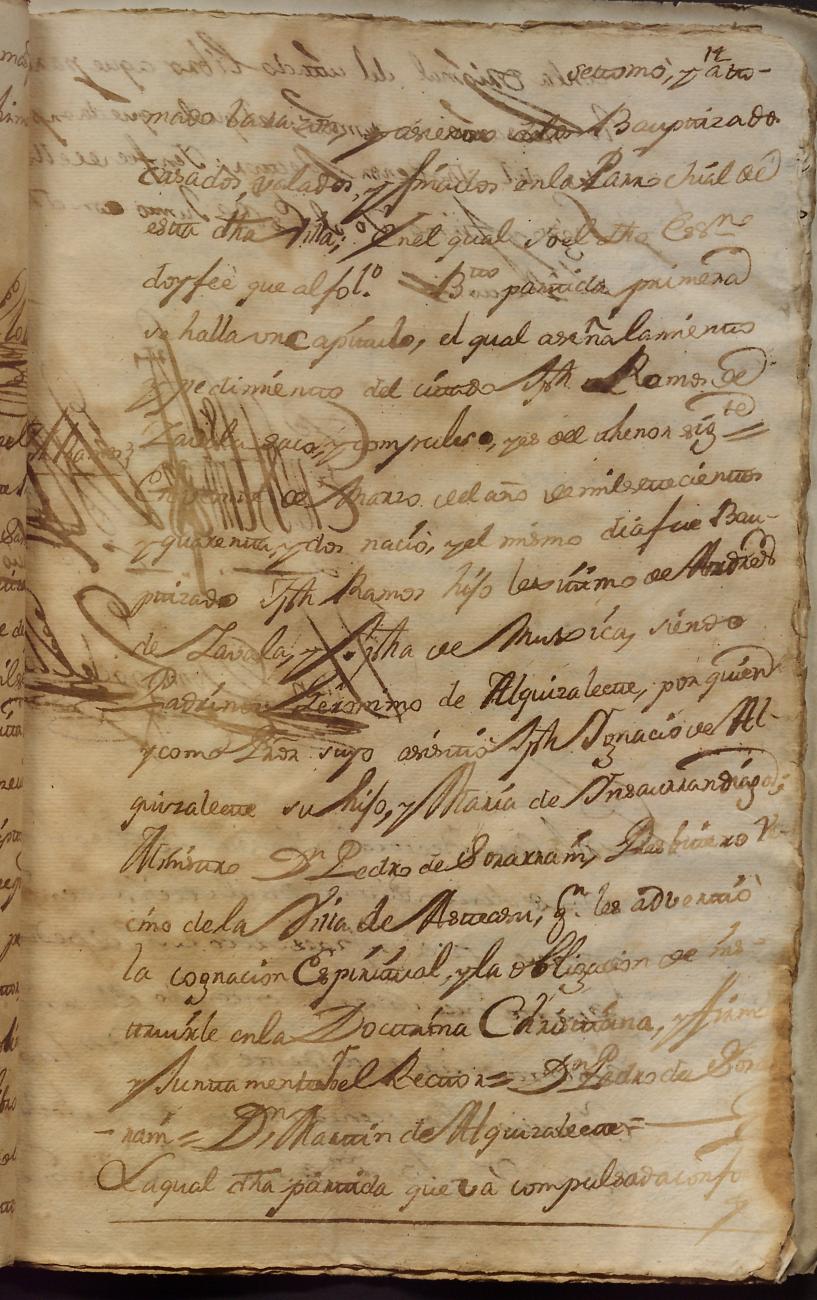 14
settimo, y a tto-
mado para y asiento de los Bauptizado
casados, velados, y finados en la Parrochial de
esta dha Villa; En el qual yo el dho Essno
doy feè que al fol.º = Btto partida primera
se halla un Capitulo, el qual a señalamiento
y pedimiento del citado Jph Ramos de
Zavala saco, y compulso, y es del thenor sigte =
En de Marzo del año de mil settecientos
y quarenta, y dos naciò, y el mismo dia fue Bau-
ptizado Jph Ramos hijo lexitimo de Andres
de Zavala, y de Muxica, siendo
Padrinos Geronimo de Alquizalette, por quien
y como Pror suyo asistiò Jph Ygnacio de Al-
quizalette su hijo, y Maria de Ynsaurrandiaga;
Ministro Dn Pedro de Sorarrain, Presbitero Ve-
cino de la Villa de Asteasu, qn les advertiò
la cognacion Espiritual, y la obligacion de ins-
truirle en la Doctrina Christiana, y firmè
y Juntamente el Rector = Dn Pedro de Sora
rain = Dn Martin de Alquizalette =
La qual dha partida que và compulsada confo